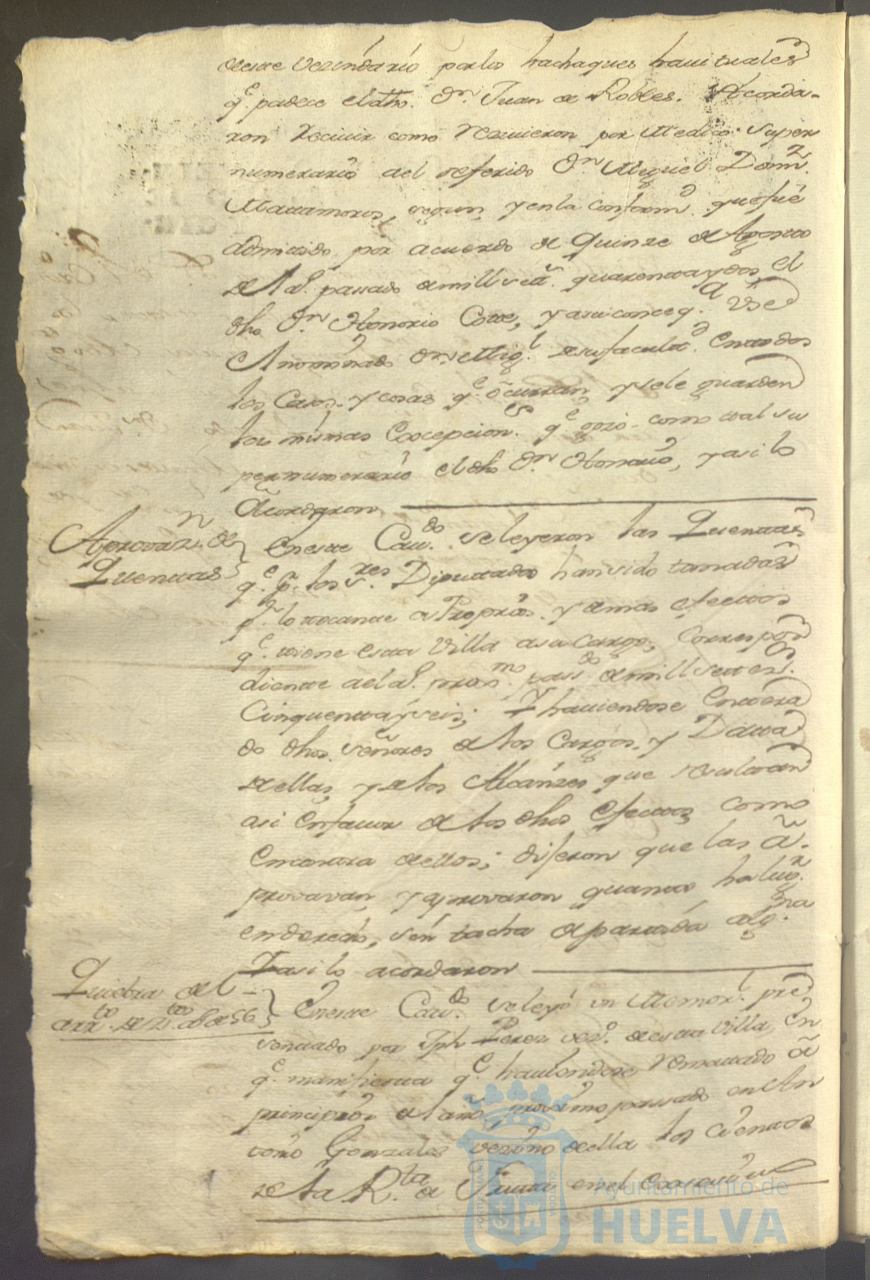 deste vezindario por los hachaques havituales
q.e padece el dho. Dn. Juan de Robles. Acorda-
ron recivir como recivieron por Medico super
numerario al referido Dn. Miguel Domz.
Matamoros, segun y en la conform.d que fué
admitido por acuerdo de Quinze de Agosto
del a.o passado de mill set.s quarenta y dos el
dho Dn. Honorio Cote, y a su conseq.a Use
el nominado Dn. Mig.l de su facultad en todos
los Casos y cosas q.e ocurran, y se le guarden
las mismas Excepcion.es q.e gozo como tal su
pernumerario el dho Dn. Honorio, y asi lo
Acordaron
Aprovaz.n de
Quentas
En este Cav.do se leyeron las Quentas
q.e p.r los S.res Diputados han sido tomadas
p.r lo tocante a Proprios y demas efectos
q.e tiene esta Villa a su Cargo, Correspon
diente al a.o prox.mo pass.do de mill setez.s
Cinquenta y seis; Y haviendose Entera
do dhos. señores de los Cargos y Datta
de ellas, y de los Alcanzes que resultan
asi en favor de los dhos efectos como
en contra de ellos; dijeron que las a-
provavan, y aprovaron quanto ha lug.r
en derecho, sin tacha de partida alg.na
Y asi lo acordaron
Quiebra del
En este Cav.do se leyó un Memor.l pre
sentado por Jph Perez vez.o de esta Villa, en
q.e manifiesta q.e haviendose rematado a
principios del año proximo passado en An
tonio Gonzales vezino de ella los
de la R.ta de en el
Ayuntamiento de
HUELVA